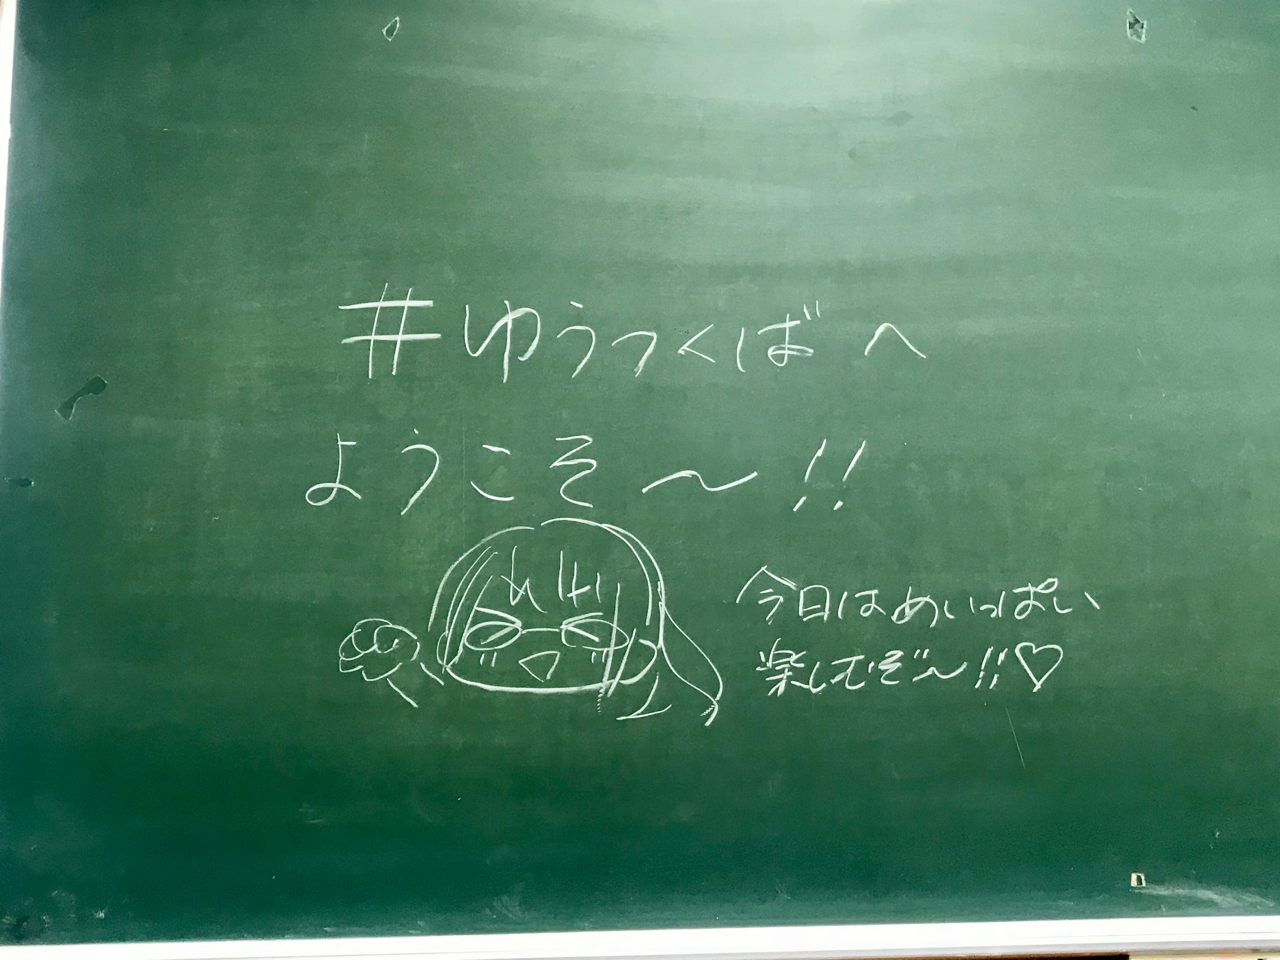 #ゆうつくばへ
ようこそ〜!!
今日はめいっぱい
楽しむぞ〜!!♡